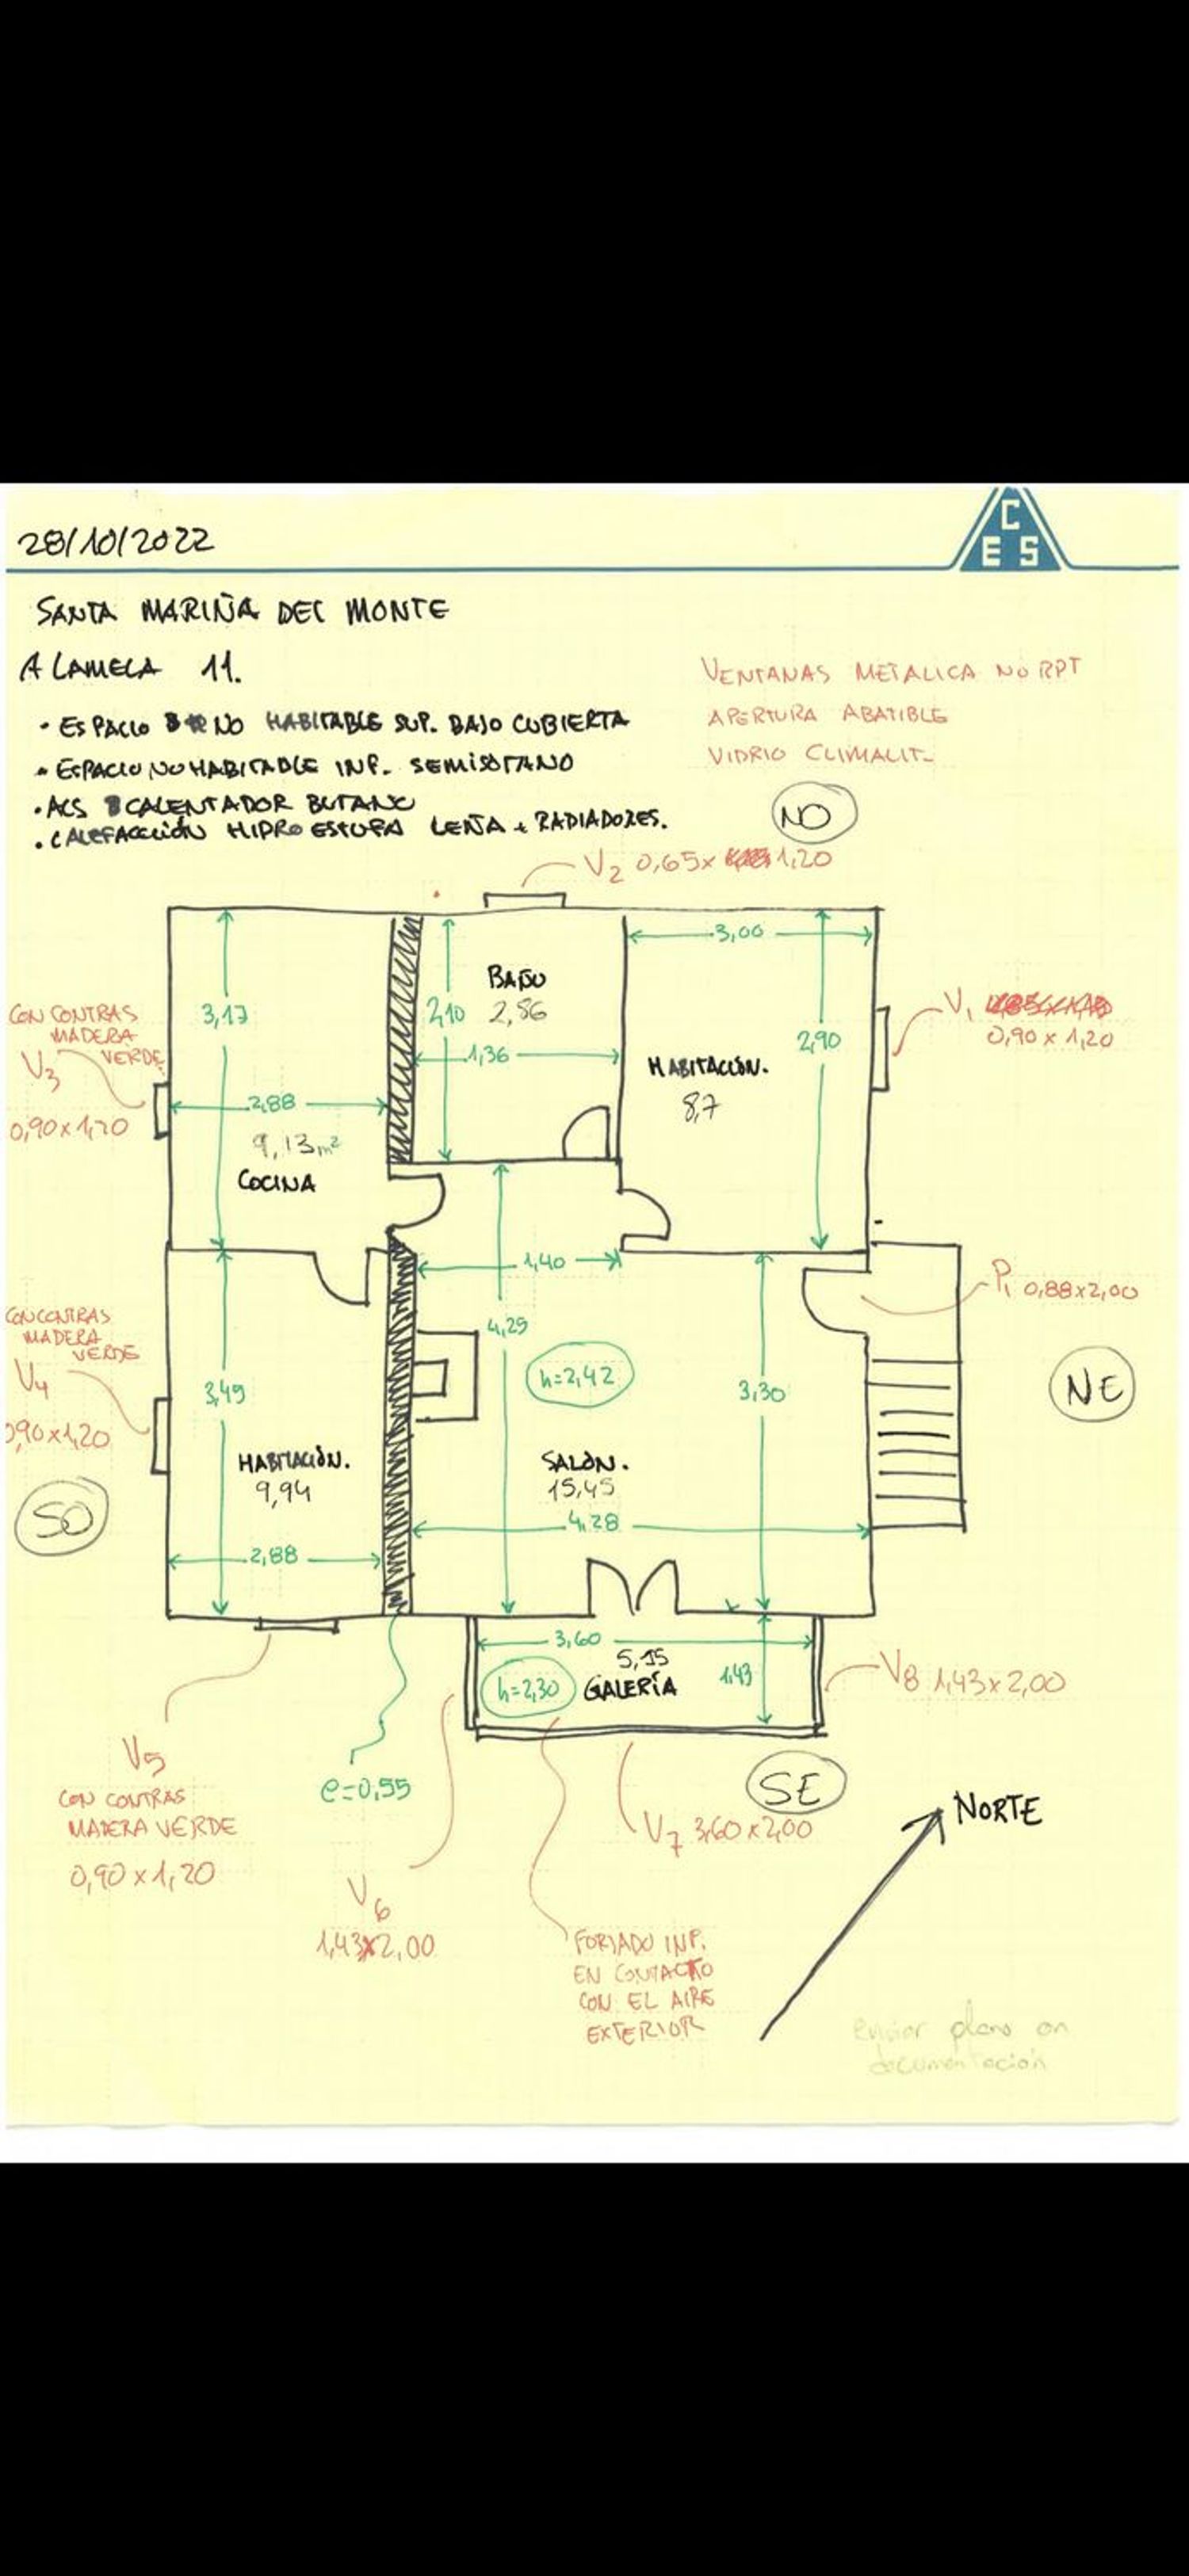 28/10/2022
C
E S
SANTA MARIÑA DEL MONTE
A LAMELA 11.
· ESPACIO NO HABITABLE SUP. BAJO CUBIERTA
· ESPACIO NO HABITABLE INF. SEMISOTANO
· ACS CALENTADOR BUTANO
· CALEFACCCIÓN HIPRO ESTUFA LEÑA + RADIADORES.
VENTANAS METALICA NO RPT
APERTURA ABATIBLE
VIDRIO CLIMALIT
NO
V2 0,65x 1,20
3,00
BAÑO
2,86
3,17
2,10
1,36
2,90
HABITACIÓN.
8,7
V1
0,90 x 1,20
CON CONTRAS
MADERA
VERDE
V3
0,90 x 1,20
2,88
9,13 m²
COCINA
1,40
P1 0,88x2,00
CON CONTRAS
MADERA
VERDE
V4
0,90x1,20
4,29
h=2,42
3,49
3,30
NE
HABITACIÓN.
9,94
SALÓN.
15,45
SO
4,28
2,88
3,60
5,15
h=2,30
GALERÍA
1,43
V8 1,43x2,00
V5
CON CONTRAS
MADERA VERDE
0,90 x 1,20
e=0,55
SE
NORTE
V7 3,60x2,00
V6
1,43x2,00
FORJADO INF.
EN CONTACTO
CON EL AIRE
EXTERIOR
Enviar plano en
documentación